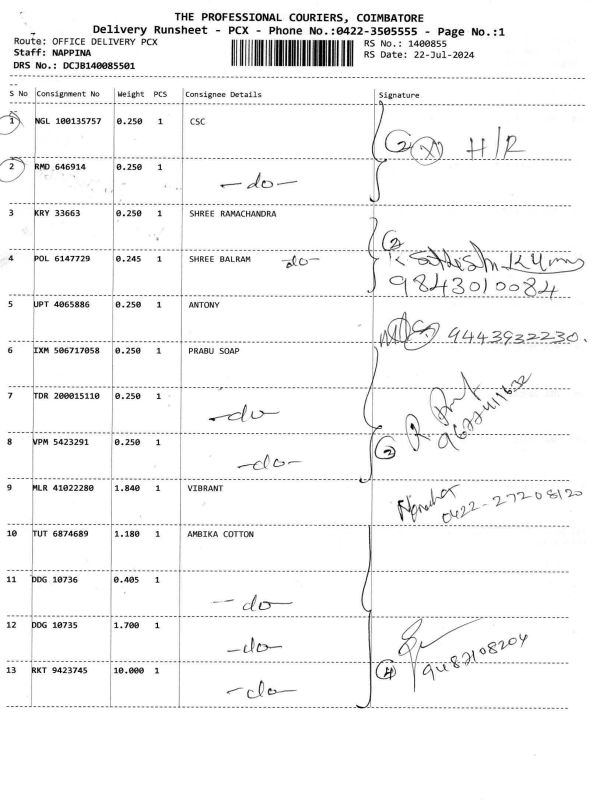 THE PROFESSIONAL COURIERS, COIMBATORE
Delivery Runsheet - PCX - Phone No.:0422-3505555 - Page No.:1
Route: OFFICE DELIVERY PCX RS No.: 1400855
Staff: NAPPINA RS Date: 22-Jul-2024
DRS No.: DCJB140085501
S No Consignment No Weight PCS Consignee Details Signature
1 NGL 100135757 0.250 1 CSC 2 H/R
2 RMD 646914 0.250 1 -do-
3 KRY 33663 0.250 1 SHREE RAMACHANDRA 2
4 POL 6147729 0.245 1 SHREE BALRAM -do- K Sathish Kumar
9843010084
5 UPT 4065886 0.250 1 ANTONY
9443932230.
6 IXM 506717058 0.250 1 PRABU SOAP
7 TDR 200015110 0.250 1 -do-
8 VPM 5423291 0.250 1 -do-
9 MLR 41022280 1.840 1 VIBRANT
0422-27208120
10 TUT 6874689 1.180 1 AMBIKA COTTON
11 DDG 10736 0.405 1 -do-
12 DDG 10735 1.700 1 -do-
13 RKT 9423745 10.000 1 -do- 4 9487108204